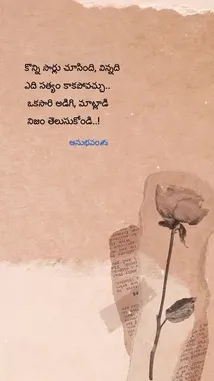 కొన్ని సార్లు చూసింది, విన్నది
ఏది సత్యం కాకపోవచ్చు..
ఒకసారి అడిగి, మాట్లాడి
నిజం తెలుసుకోండి..!
అనుభవం✍️